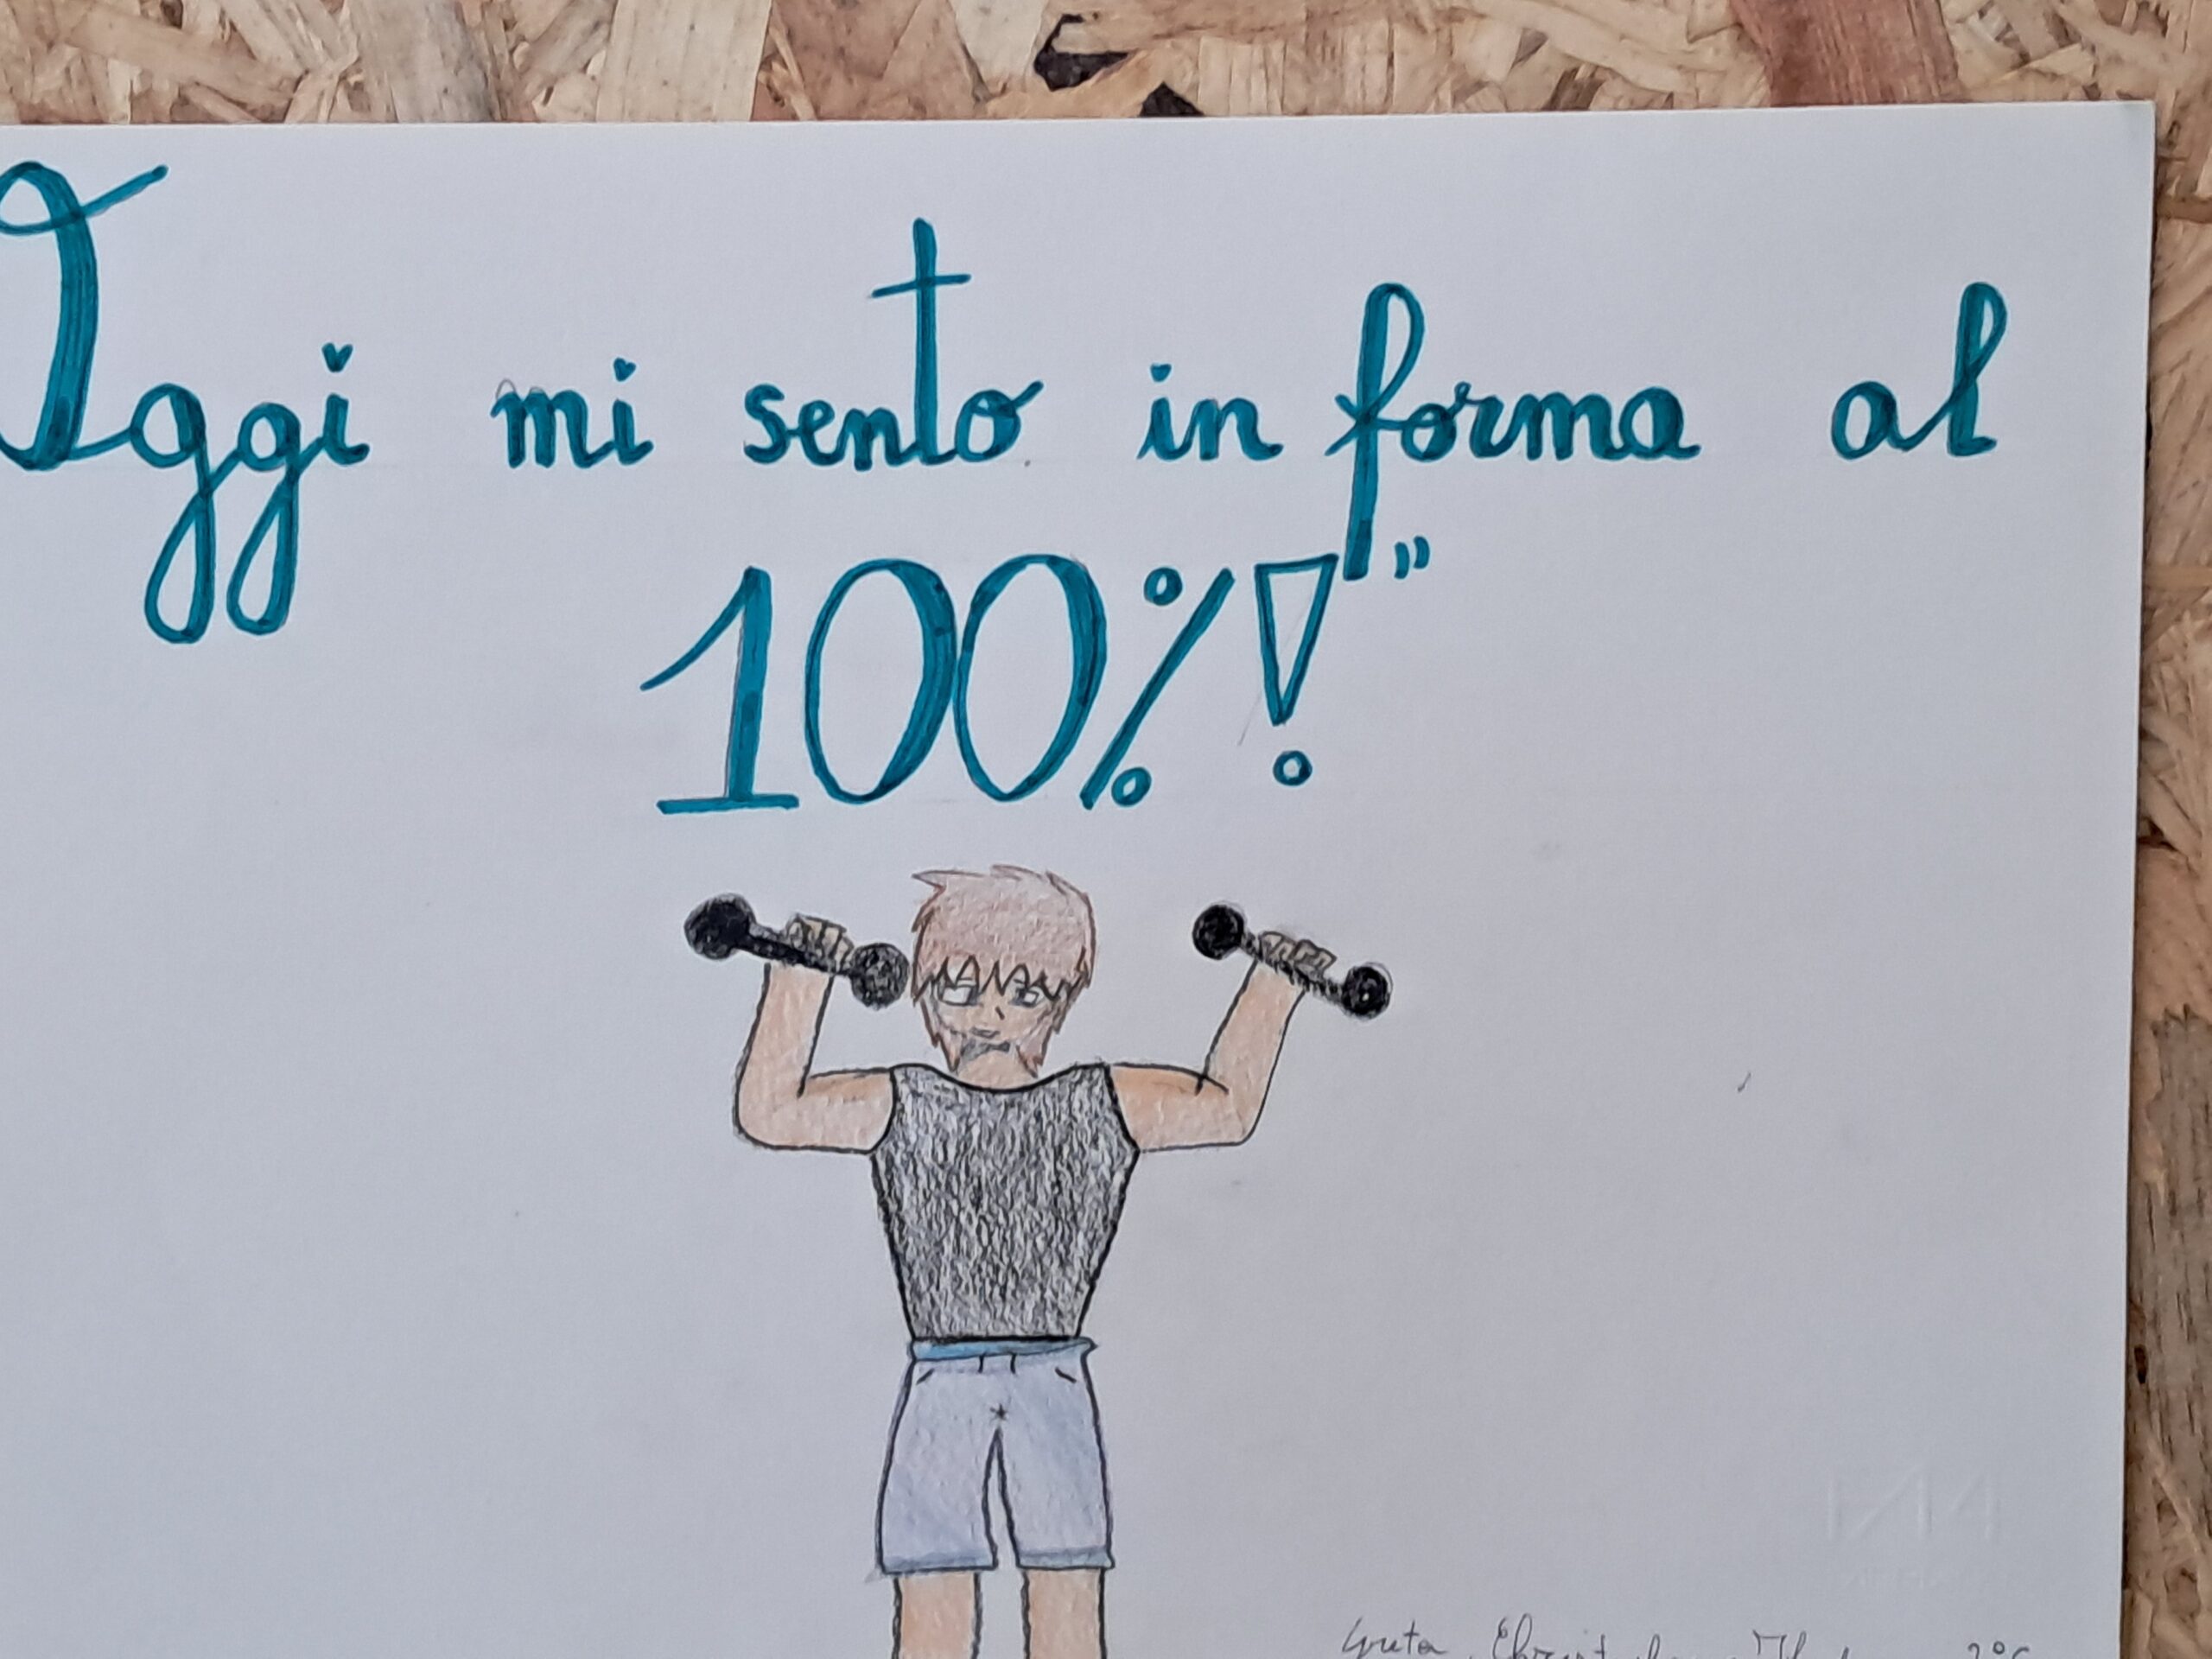 Oggi mi sento in forma al
100%!"
Greta